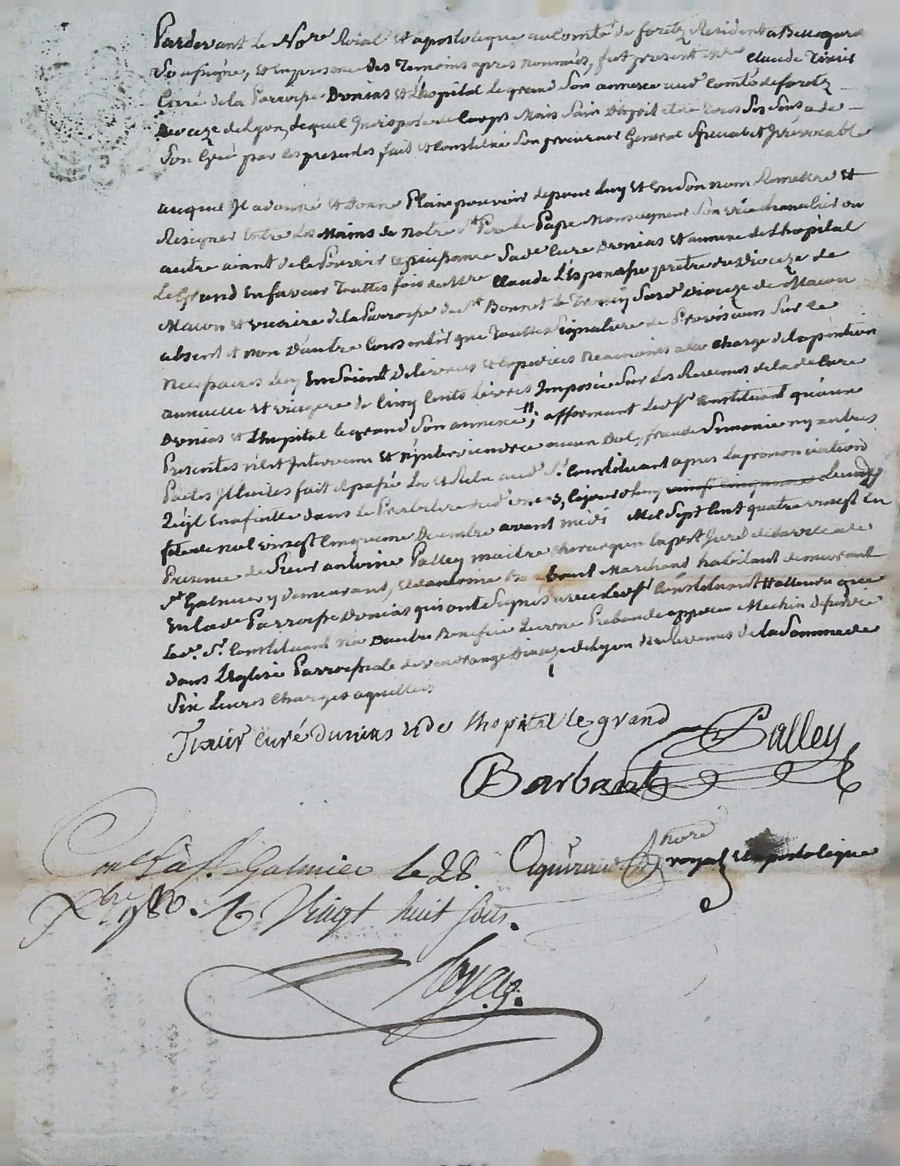 Pardevant le Nore Roial et apostolique au Comté de foretz Resident a Bellegarde
Soussigné, et En presence des Temoins apres nommés, fut present mre Claude
Curé de la Parroisse Dunias et L'hopital Le grand Son annexe audt Comté de foretz
Dioceze de Lyon, Lequel Indisposé de Corps Mais Sain D'esprit et de tous Ses Sens a de
Son Gré par Ces presentes fait et Constitué Son procureur General Special et Irrévocable
auquel Il a donné et donne Plain pouvoir de pour Luy et En Son nom Remettre et
Resigner Entre Les Mains de notre St Pere Le Pape Monseigneur Son vice chancelier ou
autre aiant de Ce Pouvoir Sade Cure Dunias et annexe de L'hopital
Le Grand En faveur Touttes fois de Mre Claude L'Espinasse pretre du Dioceze de
Macon et vicaire de la Parroisse de St Bonnet Le Dioceze de Macon
absent et non D'autre Consentir que Touttes Signature de Provisions Sur Ce
Necessaires Luy En Soient Delivrées et Expediées Neanmoins a la Charge de la pension
annuelle et viagere de Cinq Cents Livres Imposée Sur Les Revenus de lade Cure
Dunias et L'hopital le grand Son annexe; affirmant Ledt Sr Constituant qu'aux
Presentes n'est Intervenu et n'interviendra aucun Dol, fraude Simonie ny autres
Pactes Illicites fait et passé Lu et Relu audt Sr Constituant apres La prononciation
dans le Presbitere dudt unias, Cejourdhuy Lundy
fete de noel vingt Cinquieme Decembre avant midi Mil Sept Cent quatre vingt En
Presence de Sieur antoine Palley maitre chirurgien de la ville de
St Galmier y demeurant, et d'antoine Barbant Marchand habitant demeurant
En lade Parroisse Dunias qui ont Signés avec Ledt Sr Constituant
Ledt Sr Constituant n'a D'autre Benefice qu'une Prebende appellée Mechin
dans L'Eglise Parroissiale de Dioceze de Lyon des Revenus de La Somme de
Six Livres Charges aquittées
curé Dunias et de l'hopital le grand
Palley
Barbant
nore
royal et apostolique
Cnlé à St Galmier le 28
Xbre 1780. R Vingt huit sous.